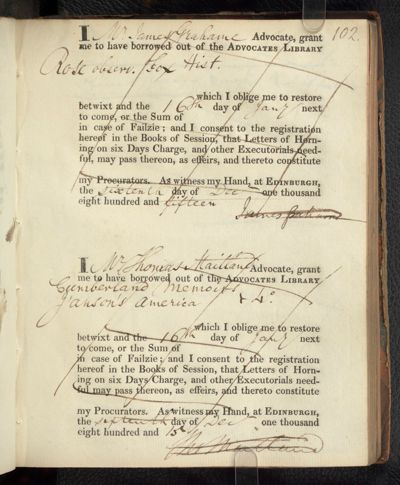 102.
I Mr James Grahame Advocate, grant
me to have borrowed out of the ADVOCATES LIBRARY
Rose observ. Fox Hist.
which I oblige me to restore
betwixt and the 16th day of Jany next
to come, or the Sum of
in case of Failzie; and I consent to the registration
hereof in the Books of Session, that Letters of Horn-
ing on six Days Charge, and other Executorials need-
ful, may pass thereon, as effeirs, and thereto constitute
my Procurators. As witness my Hand, at EDINBURGH,
the sixteenth day of Dec one thousand
eight hundred and fifteen
James Grahame
I Mr Thomas Maitland Advocate, grant
me to have borrowed out of the ADVOCATES LIBRARY
Cumberland Memoirs
Janson's America 4o
which I oblige me to restore
betwixt and the 16th day of Jany next
to come, or the Sum of
in case of Failzie; and I consent to the registration
hereof in the Books of Session, that Letters of Horn-
ing on six Days Charge, and other Executorials need-
ful may pass thereon, as effeirs, and thereto constitute
my Procurators. As witness my Hand, at EDINBURGH,
the sixteenth day of Dec one thousand
eight hundred and 15
Maitland